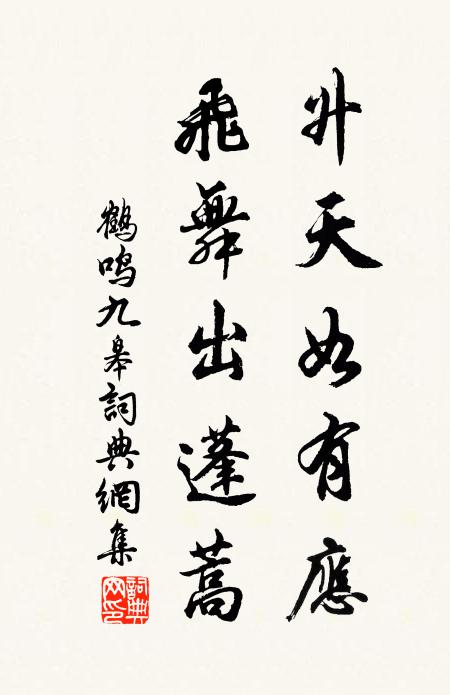 升天如有應
飛舞出蓬蒿
鶴鳴九皋詞典網集
詞典網印